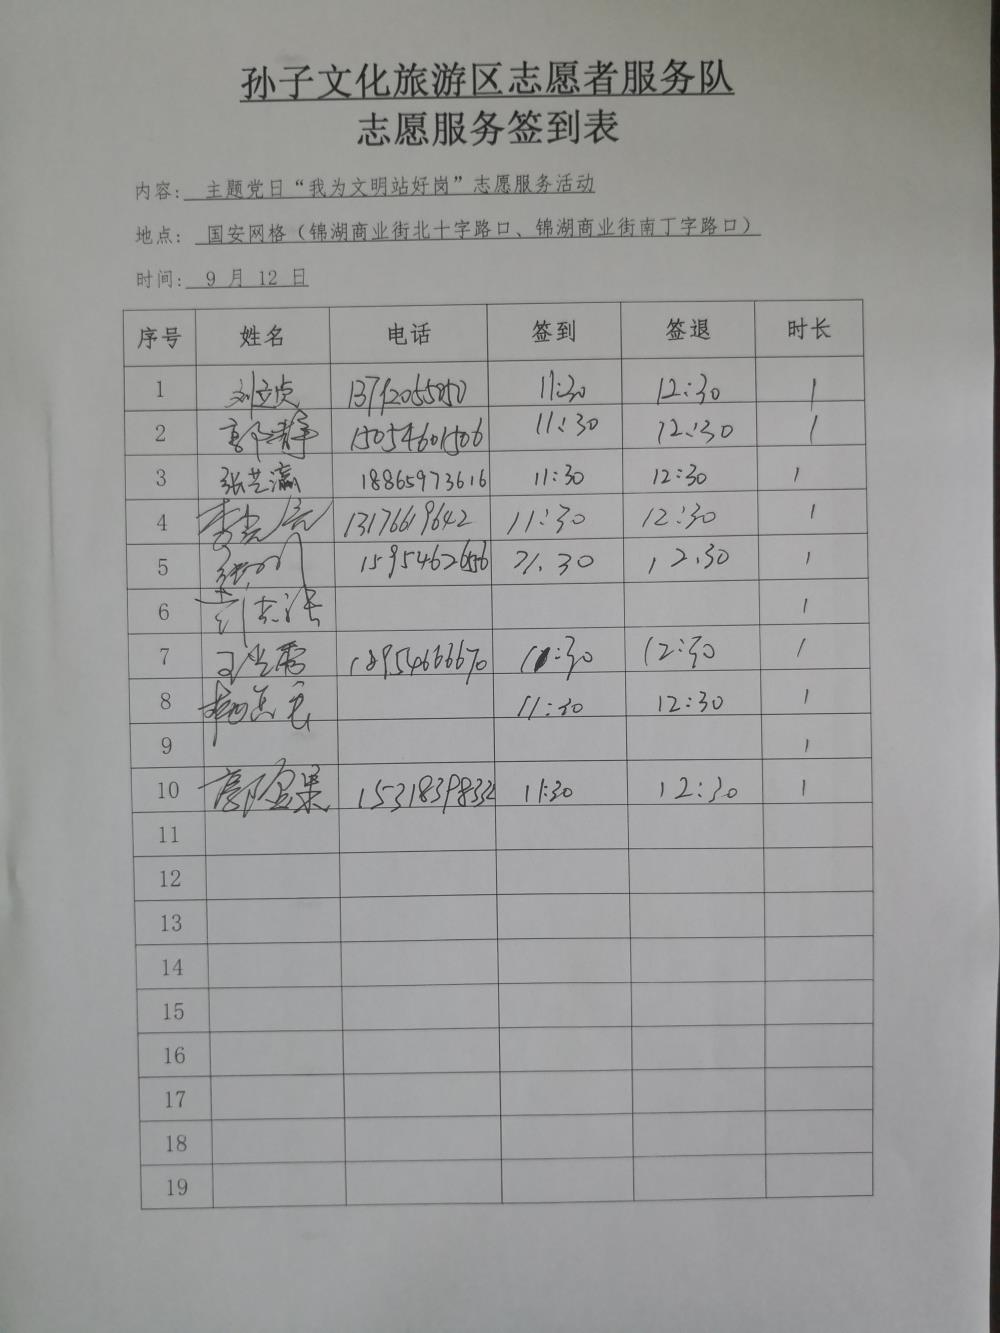 孙子文化旅游区志愿者服务队
志愿服务签到表
内容: 主题党日“我为文明站好岗”志愿服务活动
地点: 国安网格（锦湖商业街北十字路口、锦湖商业街南丁字路口）
时间: 9 月 12 日
序号 姓名 电话 签到 签退 时长
1 11:30 12:30 1
2 郭静 15054601506 11:30 12:30 1
3 张艺瀛 18865973616 11:30 12:30 1
4 13176619642 11:30 12:30 1
5 12.30 1
6 1
7 18954663670 12:30 1
8 11:30 12:30 1
9 1
10 15318398332 11:30 12:30 1
11
12
13
14
15
16
17
18
19